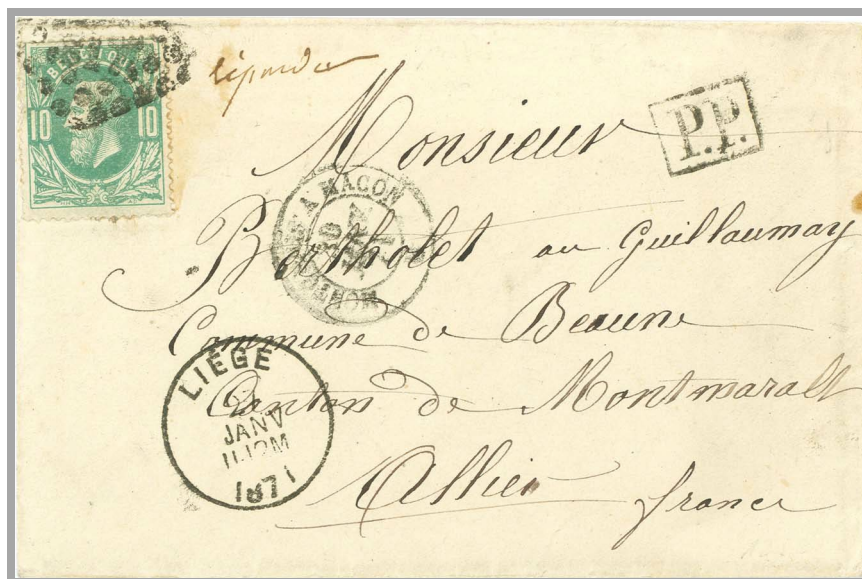 BELGIQUE
10 10
répondu
P.P.
Monsieur
Bertholet au Guillaumay
Commune de Beaune
Canton de Montmarault
Allier
france
A MACON
30
LIÉGE
JANV
11-12M
1871